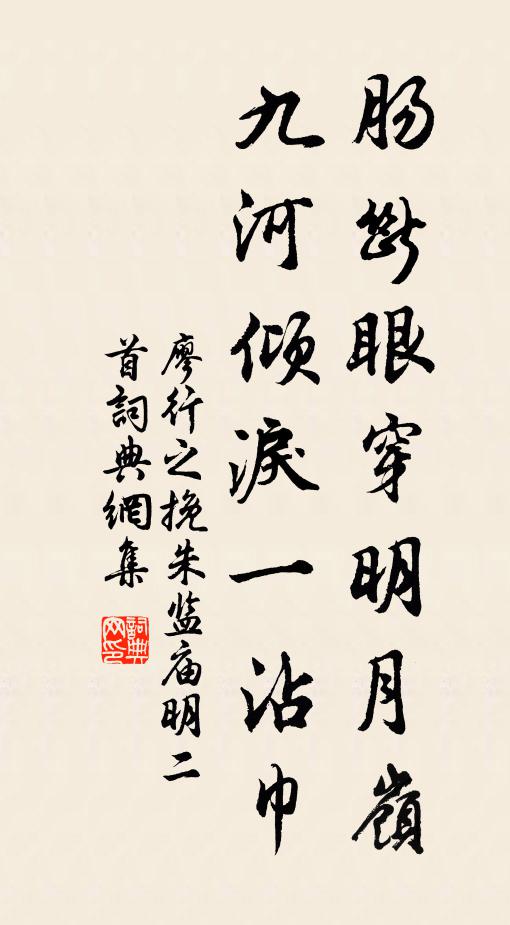 肠断眼穿明月嶺
九河倾淚一沾巾
廖行之挽朱监庙明二
首詞典網集
詞典网印